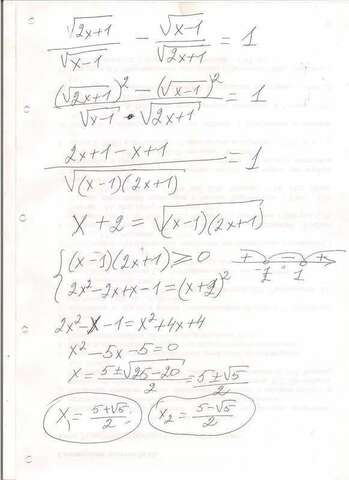 √(2x+1)/√(x-1) - √(x-1)/√(2x+1) = 1
((√(2x+1))² - (√(x-1))²)/(√(x-1) • √(2x+1)) = 1
(2x+1-x+1)/√((x-1)(2x+1)) = 1
x+2 = √((x-1)(2x+1))
{ (x-1)(2x+1) ≥ 0 + - + -1/2 1
{ 2x²-2x+x-1 = (x+2)²
2x²-x-1 = x²+4x+4
x²-5x-5=0
x = (5±√(25-20))/2 = (5±√5)/2
x₁ = (5+√5)/2; x₂ = (5-√5)/2